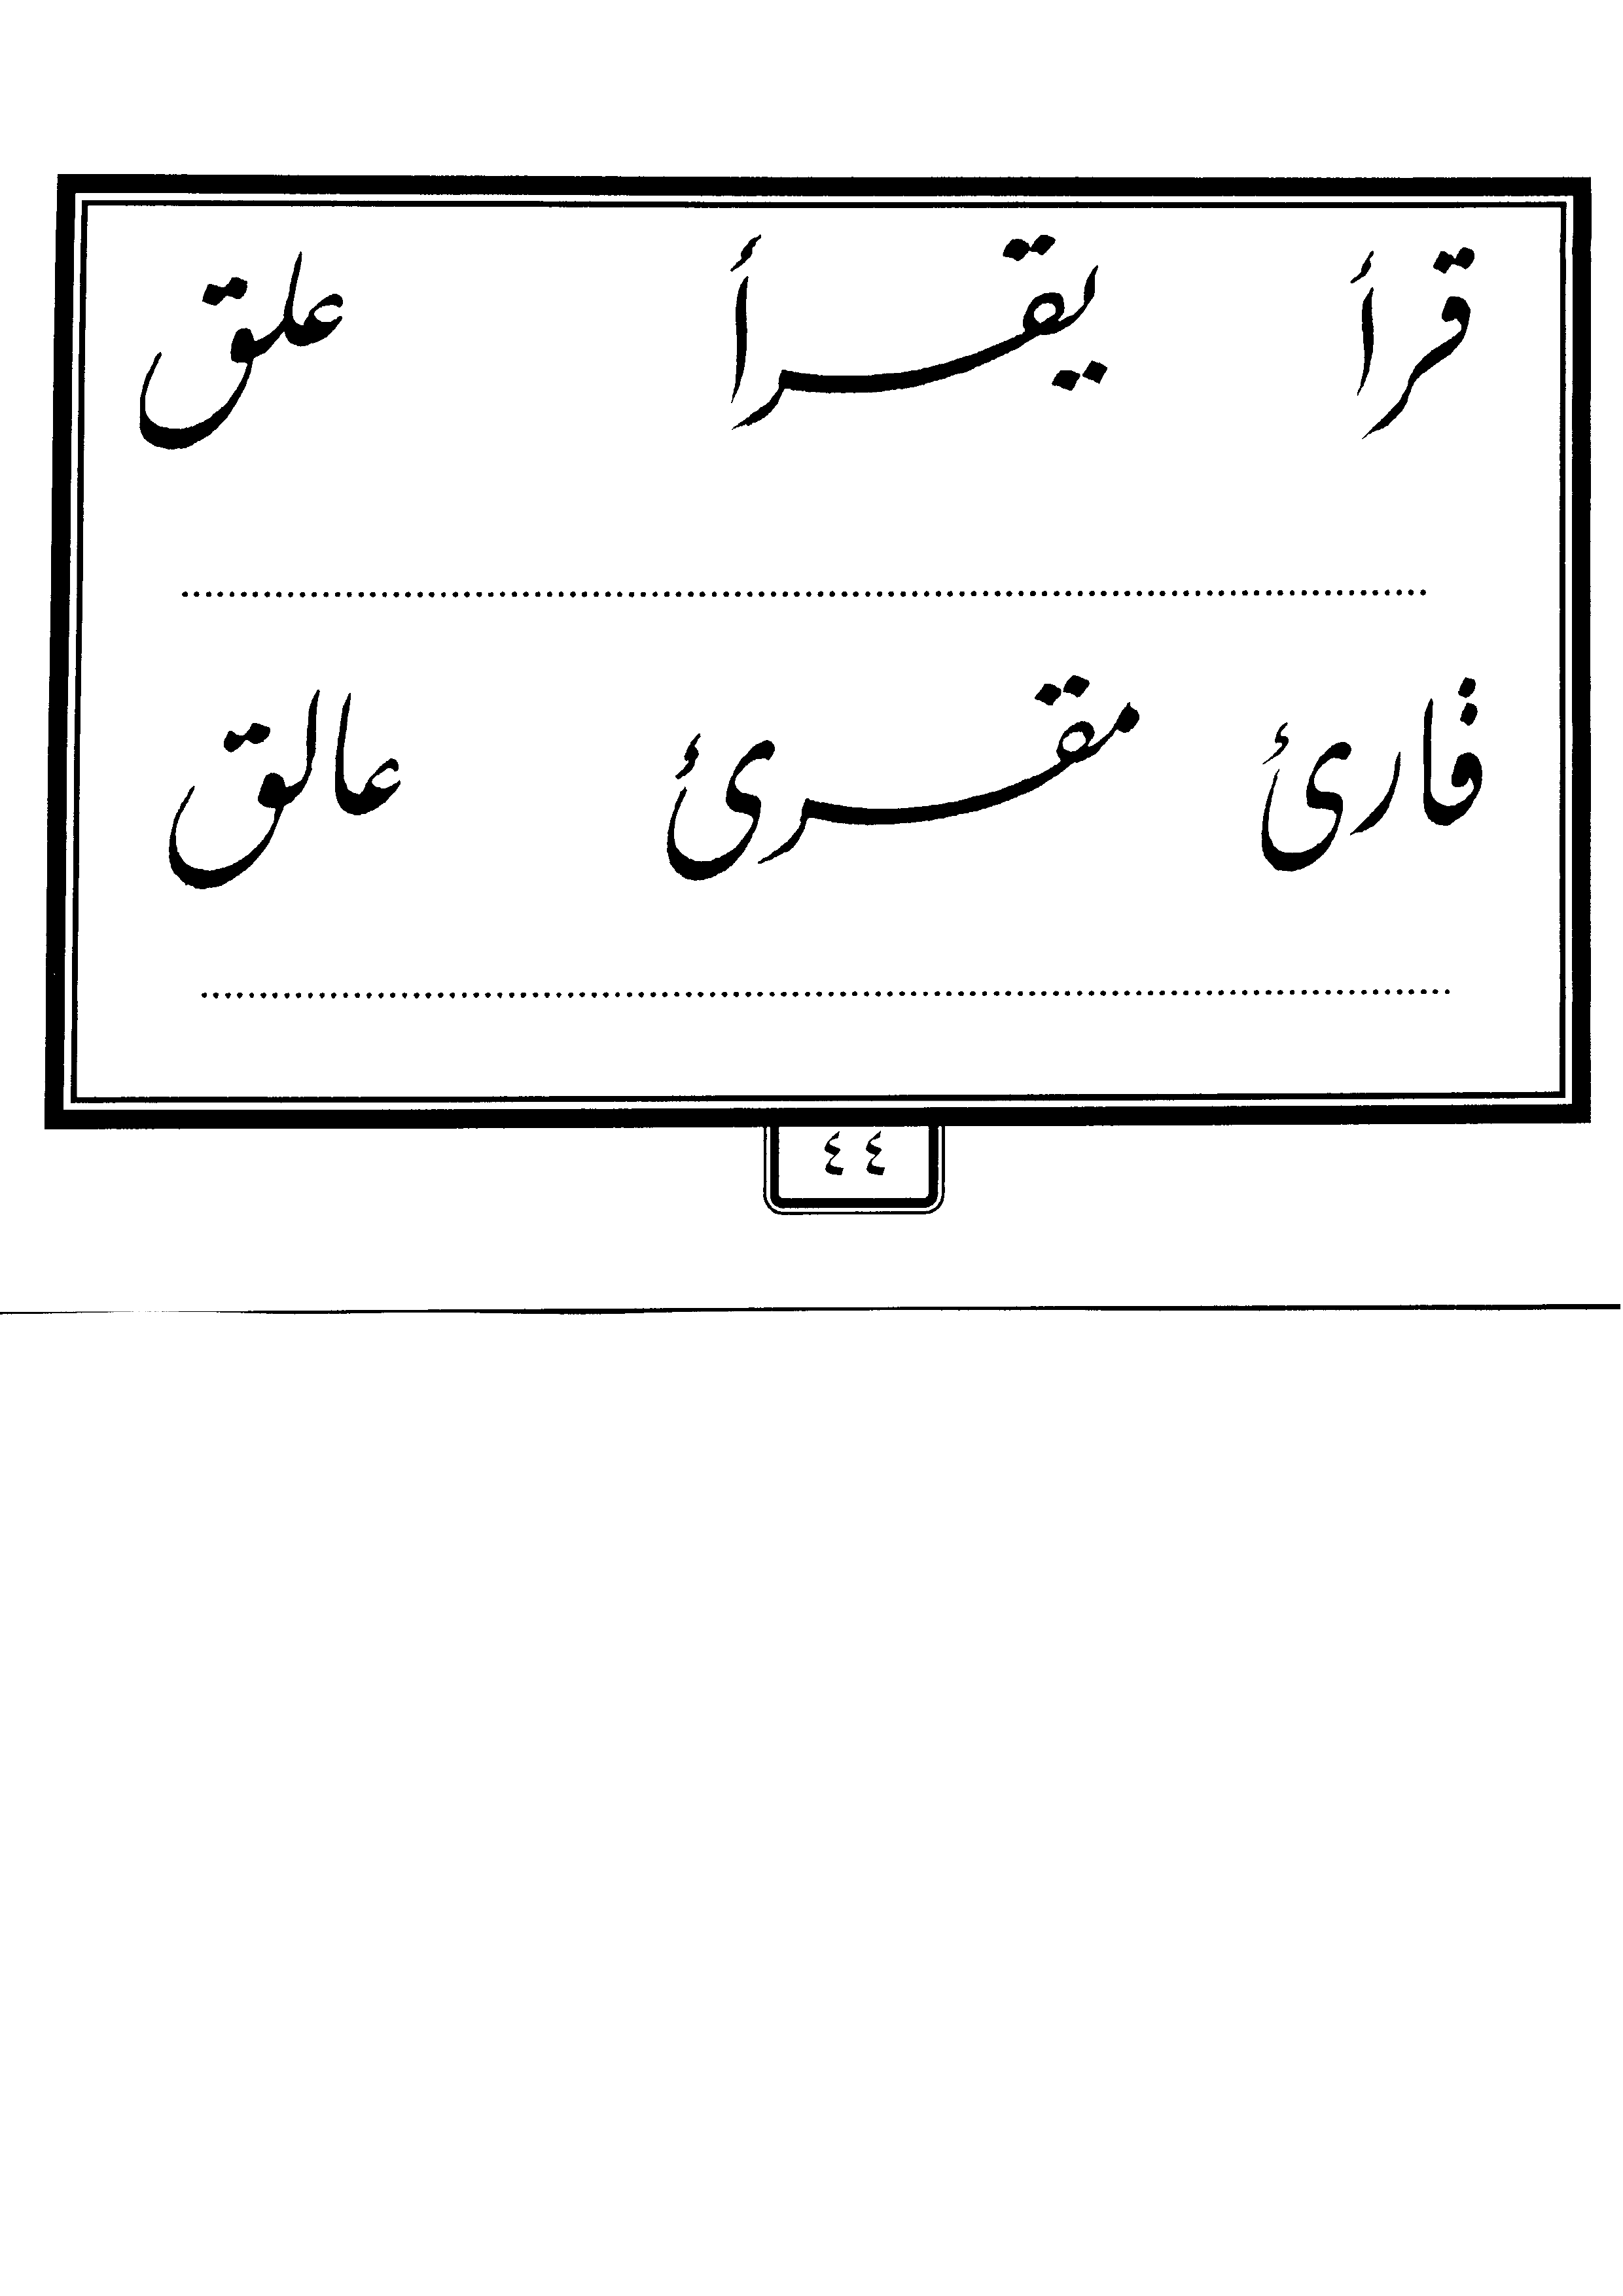 قرأ يقرأ علق
قارئ مقرئ عالق
٤٤